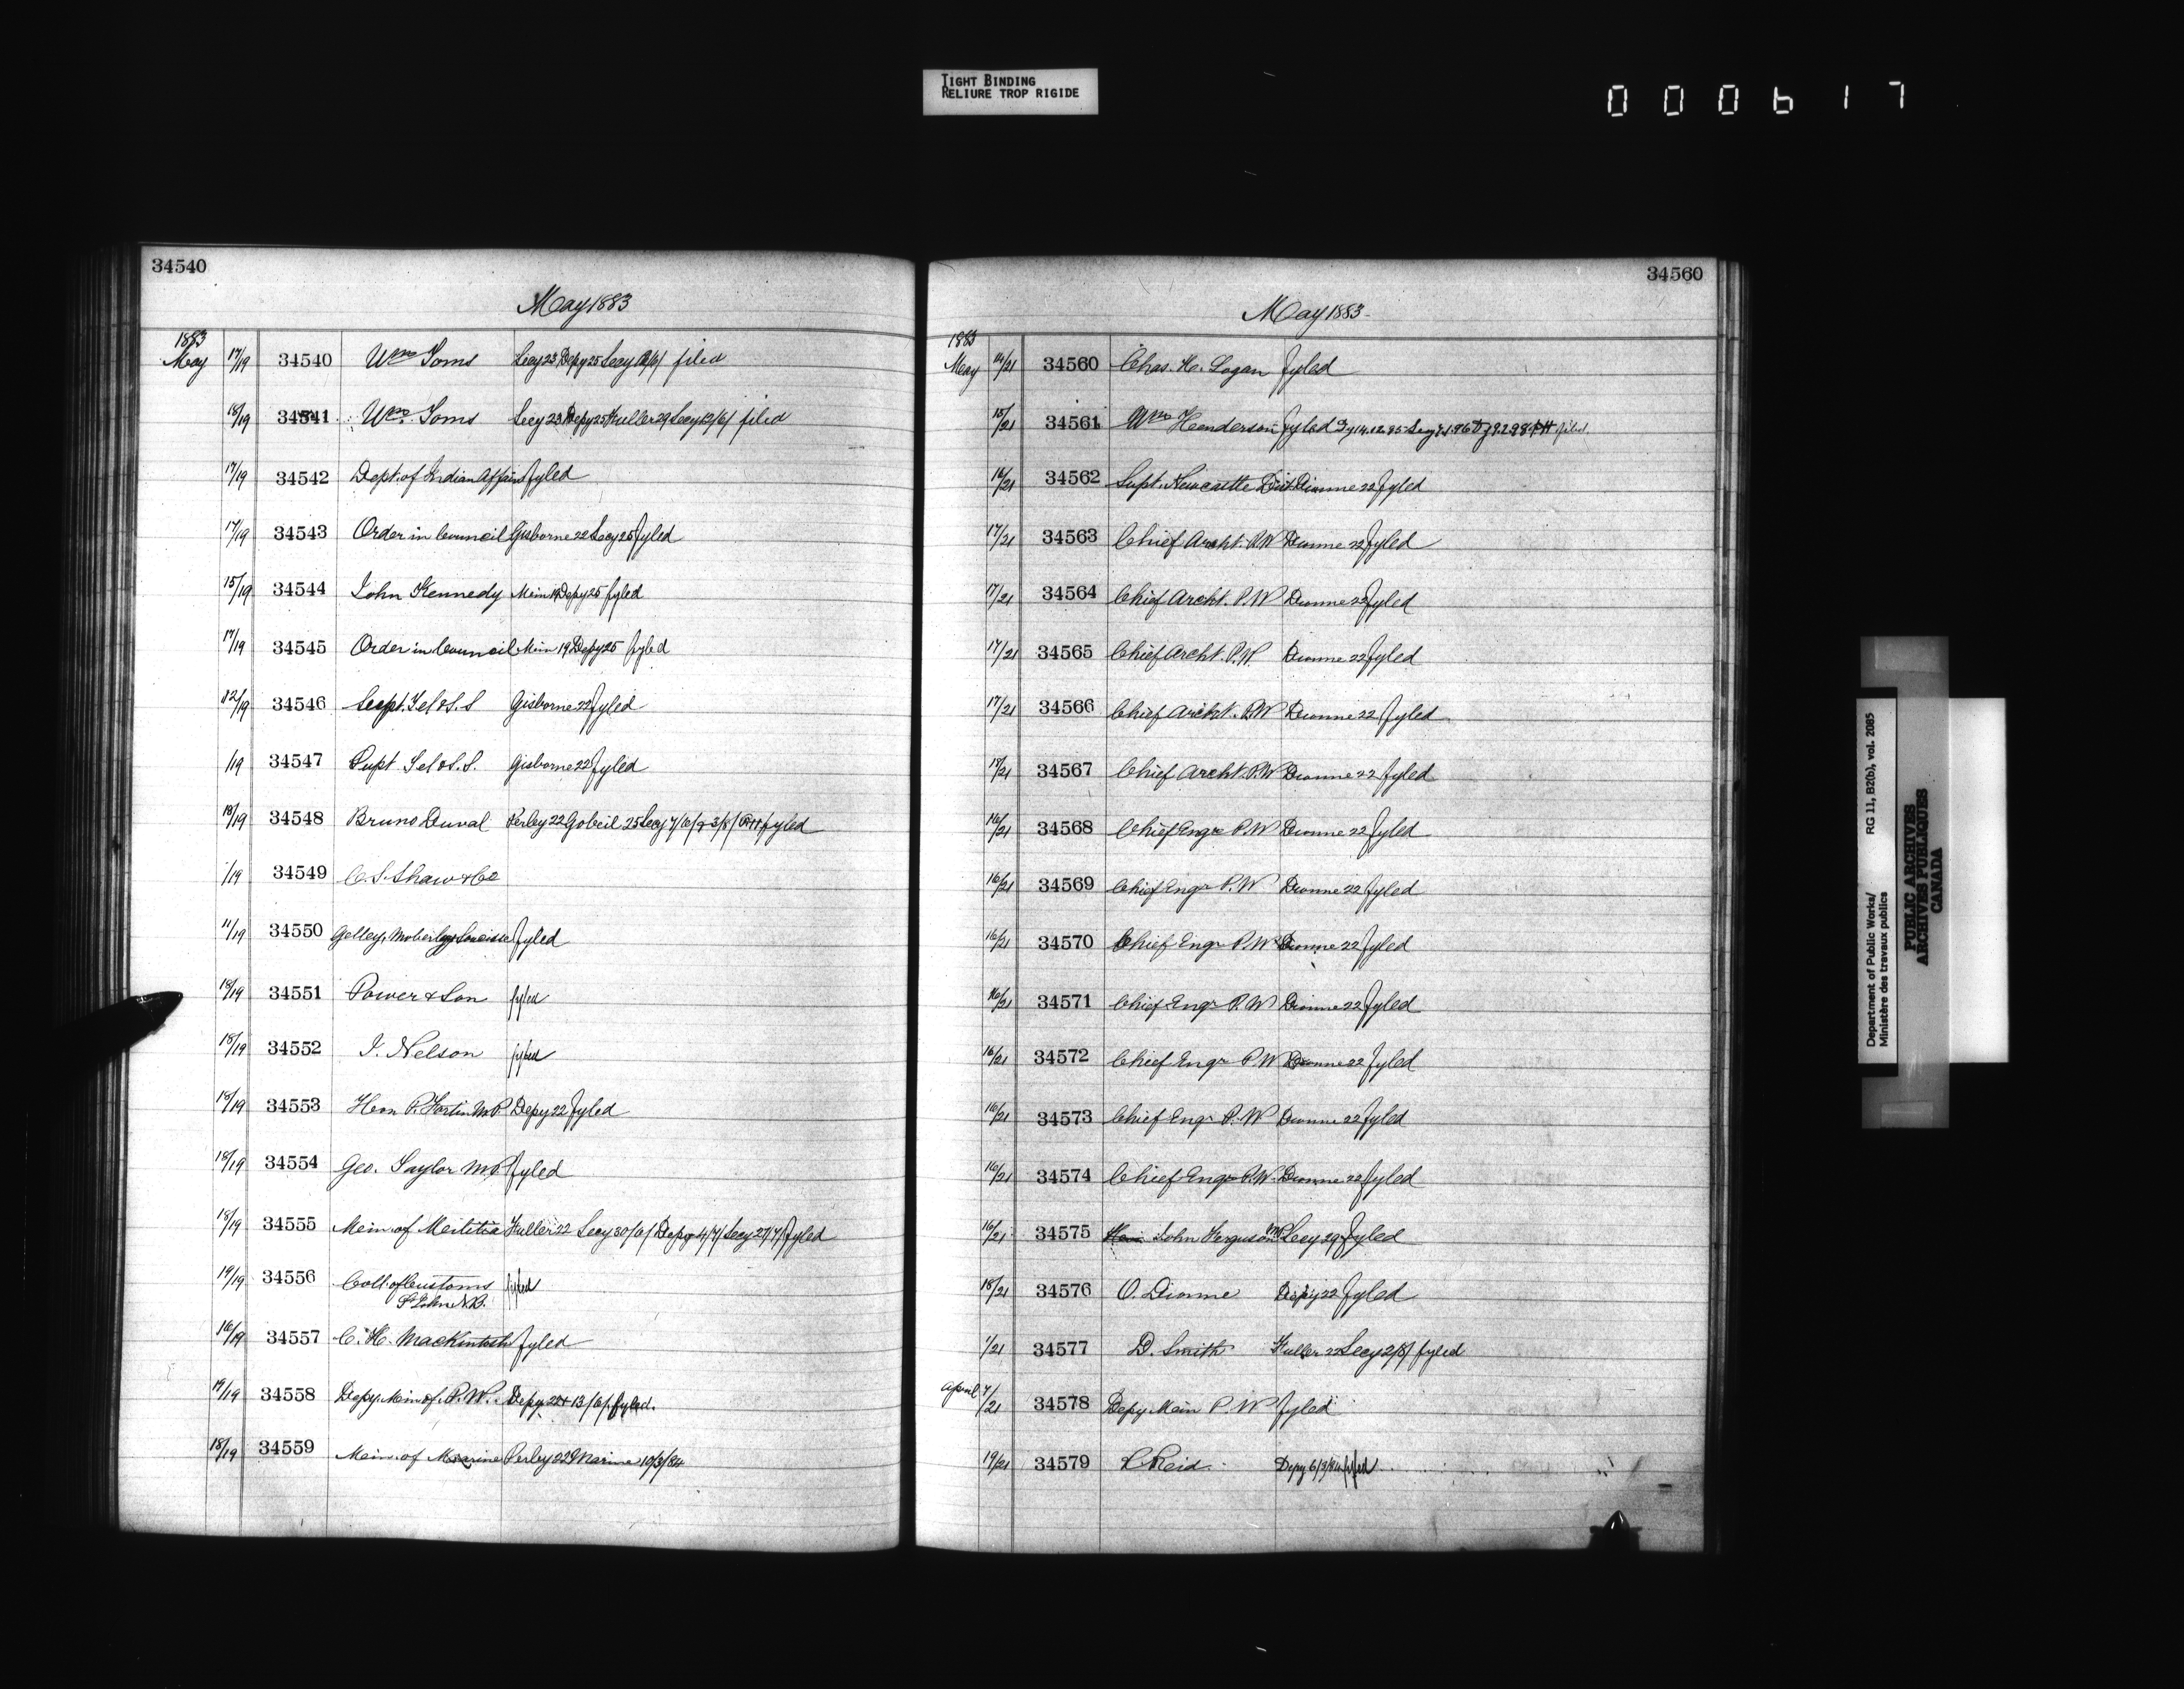 TIGHT BINDING
RELIURE TROP RIGIDE
000617
34540
May 1883
1883
May 17/19 34540 Wm Toms Secy 23 Depy 25 Secy filed
18/19 34541 Wm Toms Secy 23 Depy 25 Fuller 29 Secy 12/6/ filed
17/19 34542 Dept. of Indian Affairs fyled
17/19 34543 Order in Council Gisborne 22 Secy 25 fyled
15/19 34544 John Kennedy Min 19 Depy 25 fyled
17/19 34545 Order in Council Min 19 Depy 25 fyled
12/19 34546 Supt. Tel & S.S Gisborne 22 fyled
/19 34547 Supt. Tel & S.S. Gisborne 22 fyled
18/19 34548 Bruno Duval Perley 22 Gobeil 25 Secy 7/6/ fyled
/19 34549 C. S. Shaw & Co
11/19 34550 Gelley, Moberley fyled
18/19 34551 Power & Son fyled
18/19 34552 J. Nelson fyled
18/19 34553 Hon P. Fortin M.P. Depy 22 fyled
18/19 34554 Geo. Taylor M.P. fyled
18/19 34555 Min. of Militia Fuller 22 Secy 30/6/ Depy 4/7/ Secy 27/7/ fyled
19/19 34556 Coll. of Customs fyled
St John N.B.
16/19 34557 C. H. Mackintosh fyled
19/19 34558 Depy. Min of P.W. Depy 22 + 13/6/. fyled.
18/19 34559 Min. of Marine Perley 22 Marine 10/3/84
34560
May 1883
1883
May 14/21 34560 Chas. H. Logan fyled
15/21 34561 Wm Henderson fyled Dy 14.12.85 filed.
16/21 34562 Supt. Newcastle Dist. Dionne 22 fyled
17/21 34563 Chief Archt. P.W Dionne 22 fyled
17/21 34564 Chief Archt. P.W Dionne 22 fyled
17/21 34565 Chief Archt. P.W. Dionne 22 fyled
17/21 34566 Chief Archt. P.W Dionne 22 fyled
17/21 34567 Chief Archt. P.W Dionne 22 fyled
16/21 34568 Chief Engr P.W Dionne 22 fyled
16/21 34569 Chief Engr P.W Dionne 22 fyled
16/21 34570 Chief Engr P.W Dionne 22 fyled
16/21 34571 Chief Engr P.W Dionne 22 fyled
16/21 34572 Chief Engr P.W Dionne 22 fyled
16/21 34573 Chief Engr P.W Dionne 22 fyled
16/21 34574 Chief Engr P.W. Dionne 22 fyled
16/21 34575 Hon John Ferguson MP Secy 29 fyled
18/21 34576 O. Dionne Depy 22 fyled
1/21 34577 D. Smith Fuller 22 Secy 2/8/ fyled
April 7/21 34578 Depy Min P.W fyled
19/21 34579 Reid Depy 6/3/84 fyled
Department of Public Works/ RG 11, B2(b), vol. 2085
Ministère des travaux publics
PUBLIC ARCHIVES
ARCHIVES PUBLIQUES
CANADA